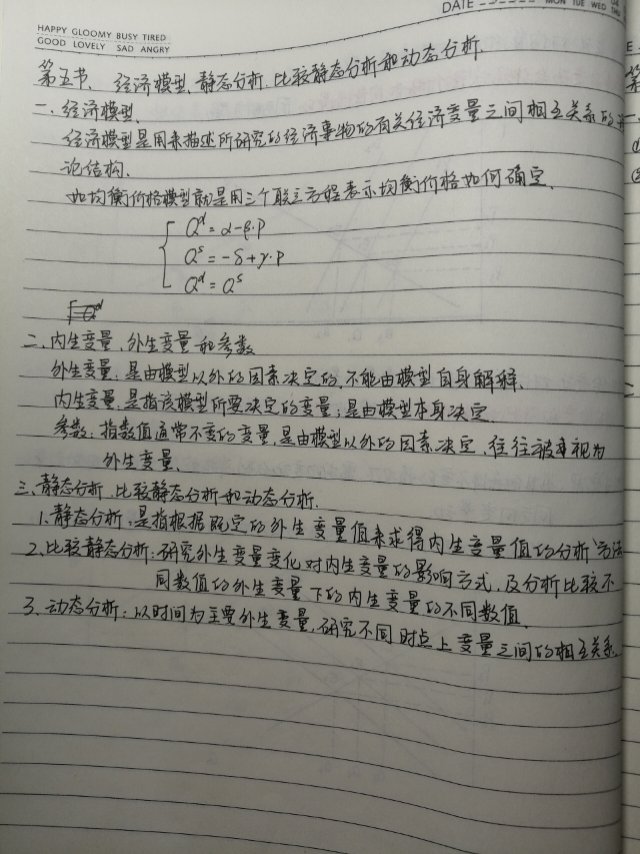 DATE
MON TUE WED THU
HAPPY GLOOMY BUSY TIRED
GOOD LOVELY SAD ANGRY
第五节、经济模型、静态分析、比较静态分析和动态分析.
一、经济模型、
经济模型是用来描述所研究的经济事物的有关经济变量之间相互关系的
论结构、
如均衡价格模型就是用三个联立方程表示均衡价格如何确定、
Qᵈ=α-β·P
Qˢ=-δ+γ·P
Qᵈ=Qˢ
二、内生变量、外生变量和参数
外生变量:是由模型以外的因素决定的,不能由模型自身解释、
内生变量:是指该模型所要决定的变量;是由模型本身决定
参数:指数值通常不变的变量,是由模型以外的因素决定、往往被视为
外生变量、
三、静态分析、比较静态分析和动态分析.
1、静态分析:是指根据既定的外生变量值来求得内生变量值的分析方法
2、比较静态分析:研究外生变量变化对内生变量的影响方式,及分析比较不
同数值的外生变量下的内生变量的不同数值、
3、动态分析:以时间为主要外生变量,研究不同时点上变量之间的相互关系、